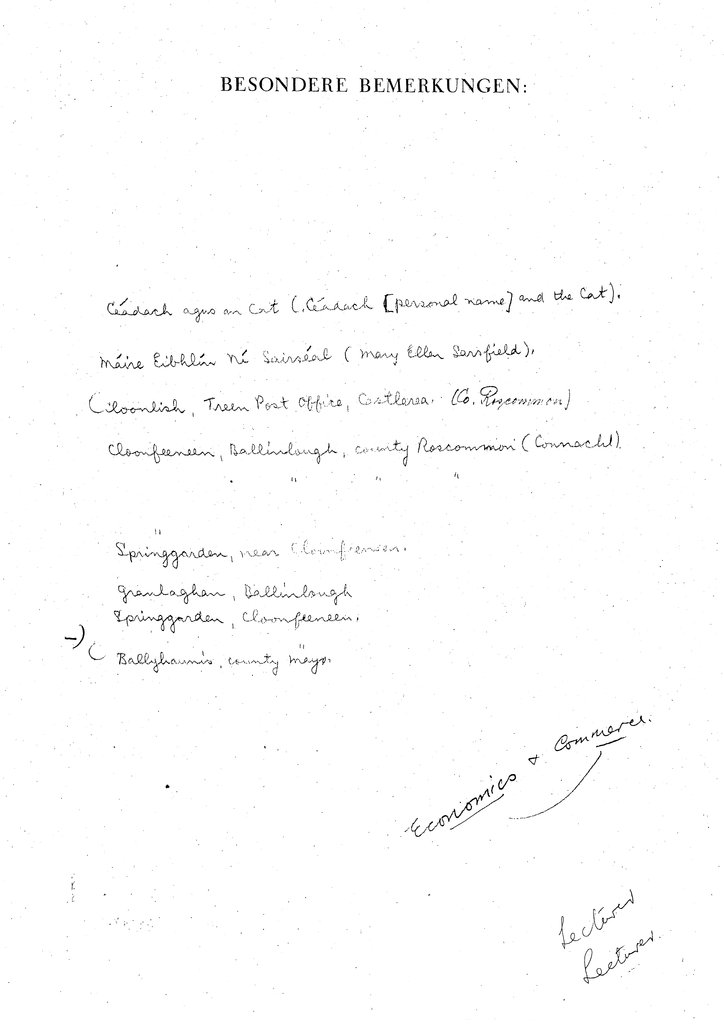 BESONDERE BEMERKUNGEN:
Céadach agus an Cat (Céadach [personal name] and the Cat).
Máire Eibhlín Ní Sairséal (Mary Ellen Sarsfield).
Cloonlish, Treen Post Office, Castlerea. (Co. Roscommon)
Cloonfeeneen, Ballinlough, county Roscommon (Connacht).
" " " "
Springgarden, near Cloonfeeneen.
Granlaghan, Ballinlough
Springgarden, Cloonfeeneen.
Ballyhaunis, county Mayo.
Economics + Commerce.
Lecturer
Lecturer.